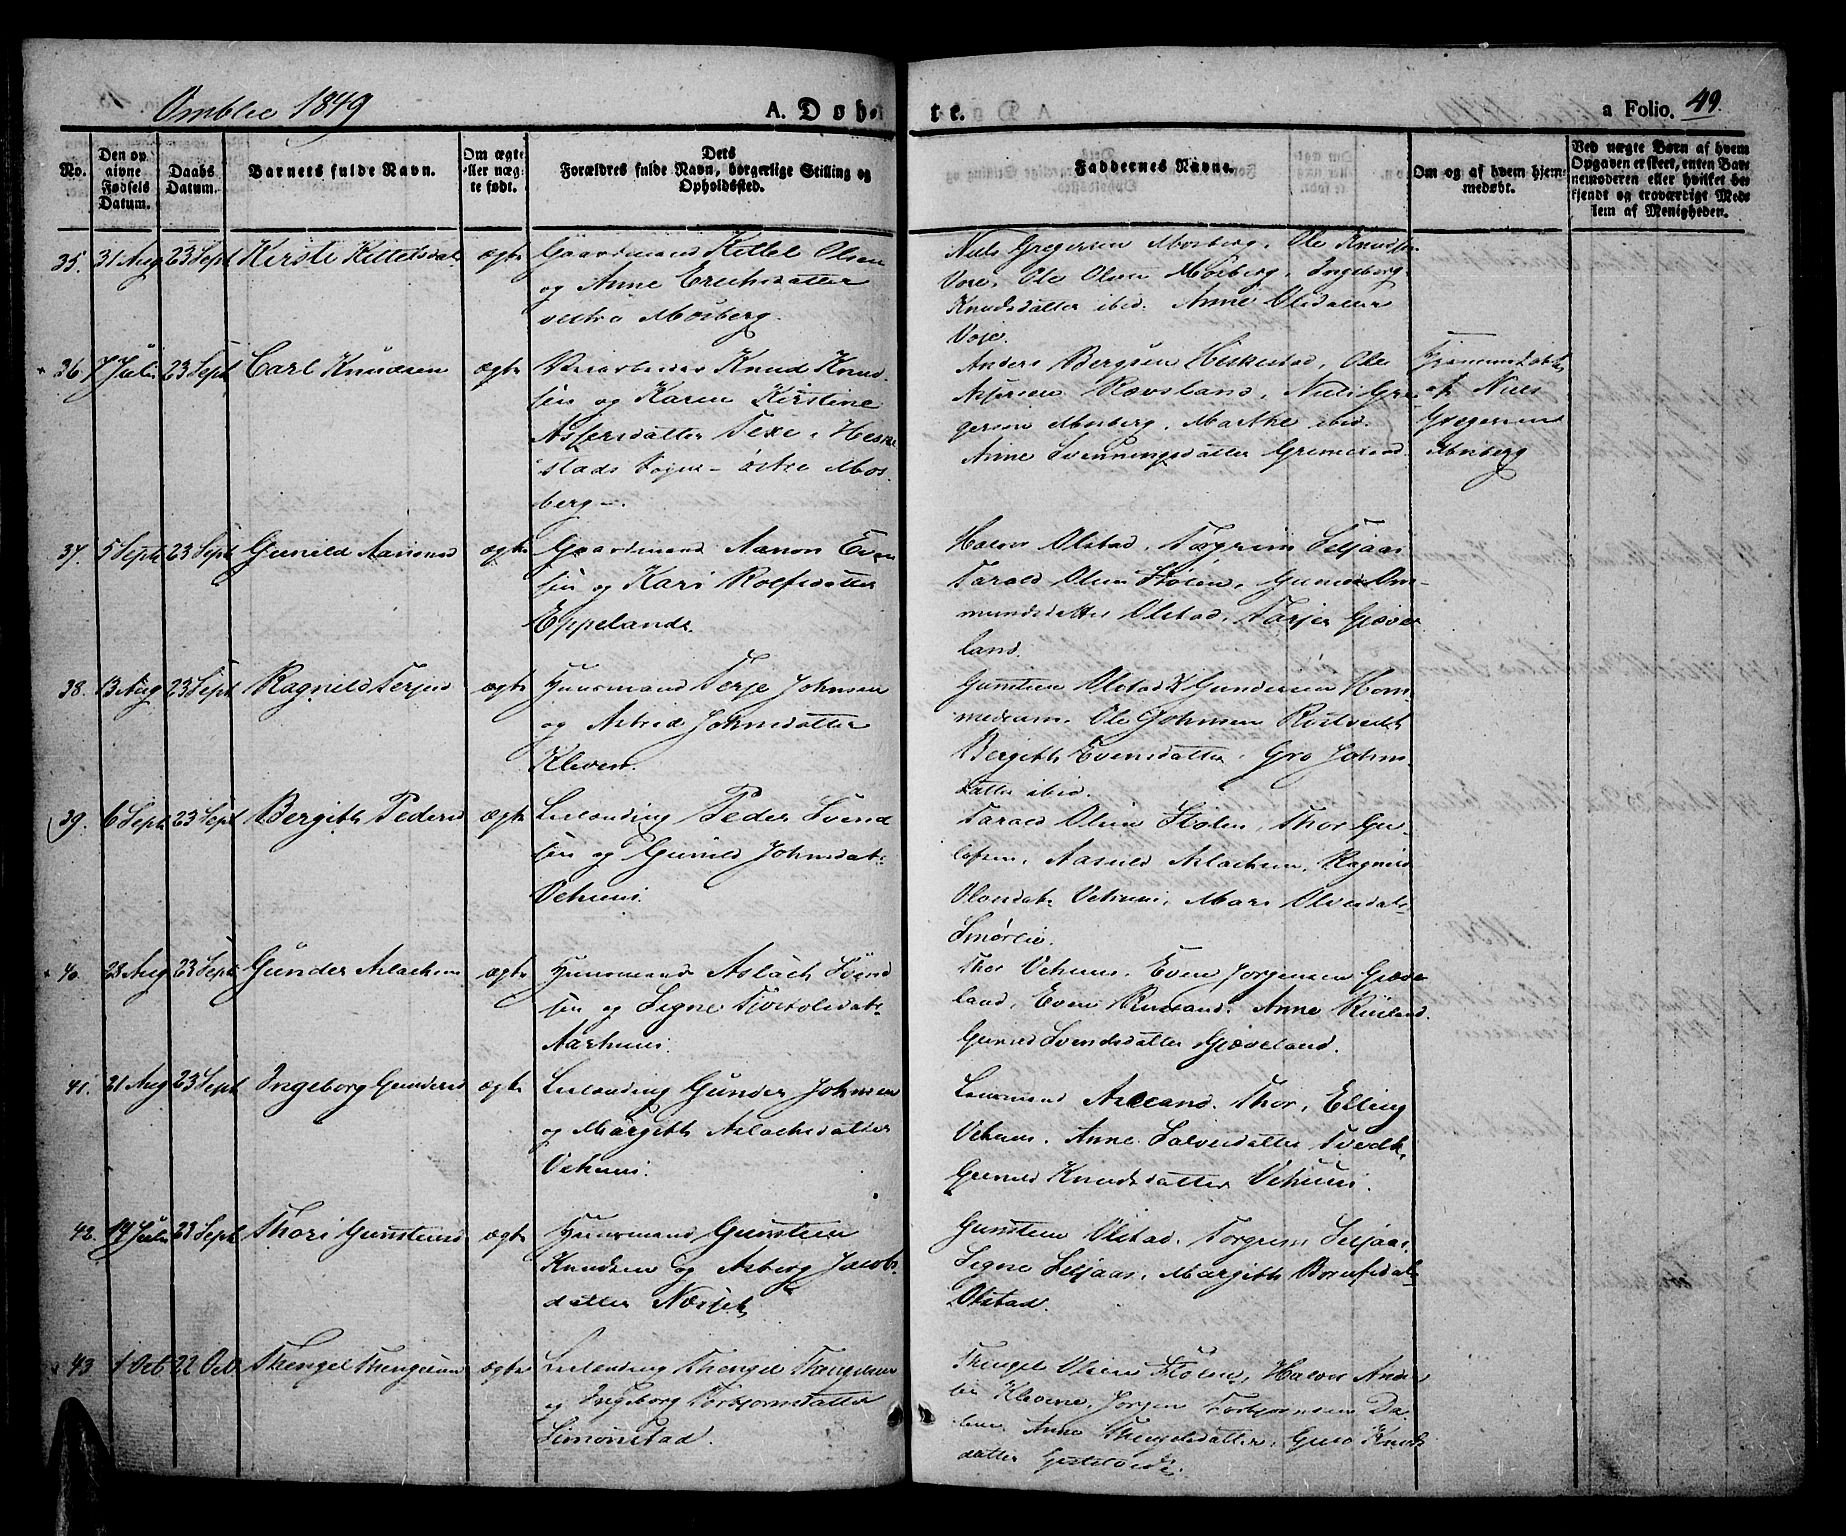 Omblie 1849
A. Døbte.
a Folio. 49.
No.
Den opgivne Fødsels Datum.
Daabs Datum.
Barnets fulde Navn.
Om ægte eller uægte født.
Forældres fulde Navn, borgerlige Stilling og Dets Opholdssted.
Faddernes Navne.
Om og af hvem hjemmedøbt.
Ved uægte Børn af hvem Opgaven er skeet, enten Barnemoderen eller hvilket bekjendt og troværdigt Medlem af Menigheden.
35. 31 Aug 23 Sept Kirsti Kittelsdat. ægte
Gaardmand Kittel Olsen
og Anne Erichsdatter
vestre Mosberg.
Niels Gregersen Mosberg, Ole Knudsen
Voie, Ole Olsen Mosberg, Ingeborg
Knudsdatter ibid. Anne Olsdatter
Voje.
36 7 Juli 23 Sept Carl Knudsen ægte
Knud Knud-
sen og Karen Kirstine
Assersdatter Texe i Heske
stads Sogn - østre Mos-
berg -.
Anders Bergsen Heskestad, Ole
Assersen Rævsland, Niels Gre-
gersen Mosberg, Marthe ibid.
Anne Svenningsdatter Grimerød
af Niels
Gregersen
Mosberg
37. 5 Sept 23 Sept Gunild Aansd ægte
Gaardmand Aanon Even
sen og Kari Rolfsdatter
Eppelands.
Halvor Olstad, Torgrim Seljaas
Tarald Olsen Stølen, Gunild Om-
mundsdatter Olstad, Tarjer Gjæver
land.
38. 13 Aug 23 Sept Ragnild Terjesd ægte
Huusmand Terje Johnsen
og Astrid Johnsdatter
Kleven.
Gunsten Olstad Gundersen Hom-
medram, Ole Johnsen Rostvedt
Bergith Evensdatter, Gro Johns
datter ibid.
39. 6 Sept 23 Sept Bergith Pedersd ægte
Leilænding Peder Svend
sen og Gunild Johnsdat.
Vehuus.
Tarald Olsen Stølen, Thor Gu-
lofsen, Aasuld Aslachsen, Ragnild
Olvesdat. Vehuus, Mari Olvesdat.
Smørlie.
40. 23 Aug 23 Sept Gunder Aslachsen ægte
Huusmand Aslach Svend
sen og Signe Tjostolsdat.
Aarhuus.
Thor Vehuus, Even Jørgensen Gjæve
land, Even Rusland, Anne Rusland
Gunild Svendsdatter Gjæveland.
41. 21 Aug 23 Sept Ingeborg Gundersd ægte
Leilænding Gunder Johnsen
og Margith Aslachsdatter
Vehuus.
Lensmand Askland, Thor, Elling
Vehuus, Anne Salvesdatter Tvedt,
Gunild Knudsdatter Vehuus.
42. 19 Juli 23 Sept Thori Gunsteinsd ægte
Huusmand Gunstein
Knudsen og Asberg Jacobs
datter Næsset
Gunstein Olstad, Torgrim Seljaas,
Signe Seljaas, Margith Bornfsdat.
Olstad.
43 1 Oct 22 Oct Thengel Thengelsen ægte
Leilænding Thengel Thengelsen
og Ingeborg Torbjørnsdatter
Simonstad.
Thengel Olsen Stølen, Halvor Ander
sen Klevene, Jørgen Torbjørnsen Da-
len, Anne Thengelsdatter, Guro Knuds
datter